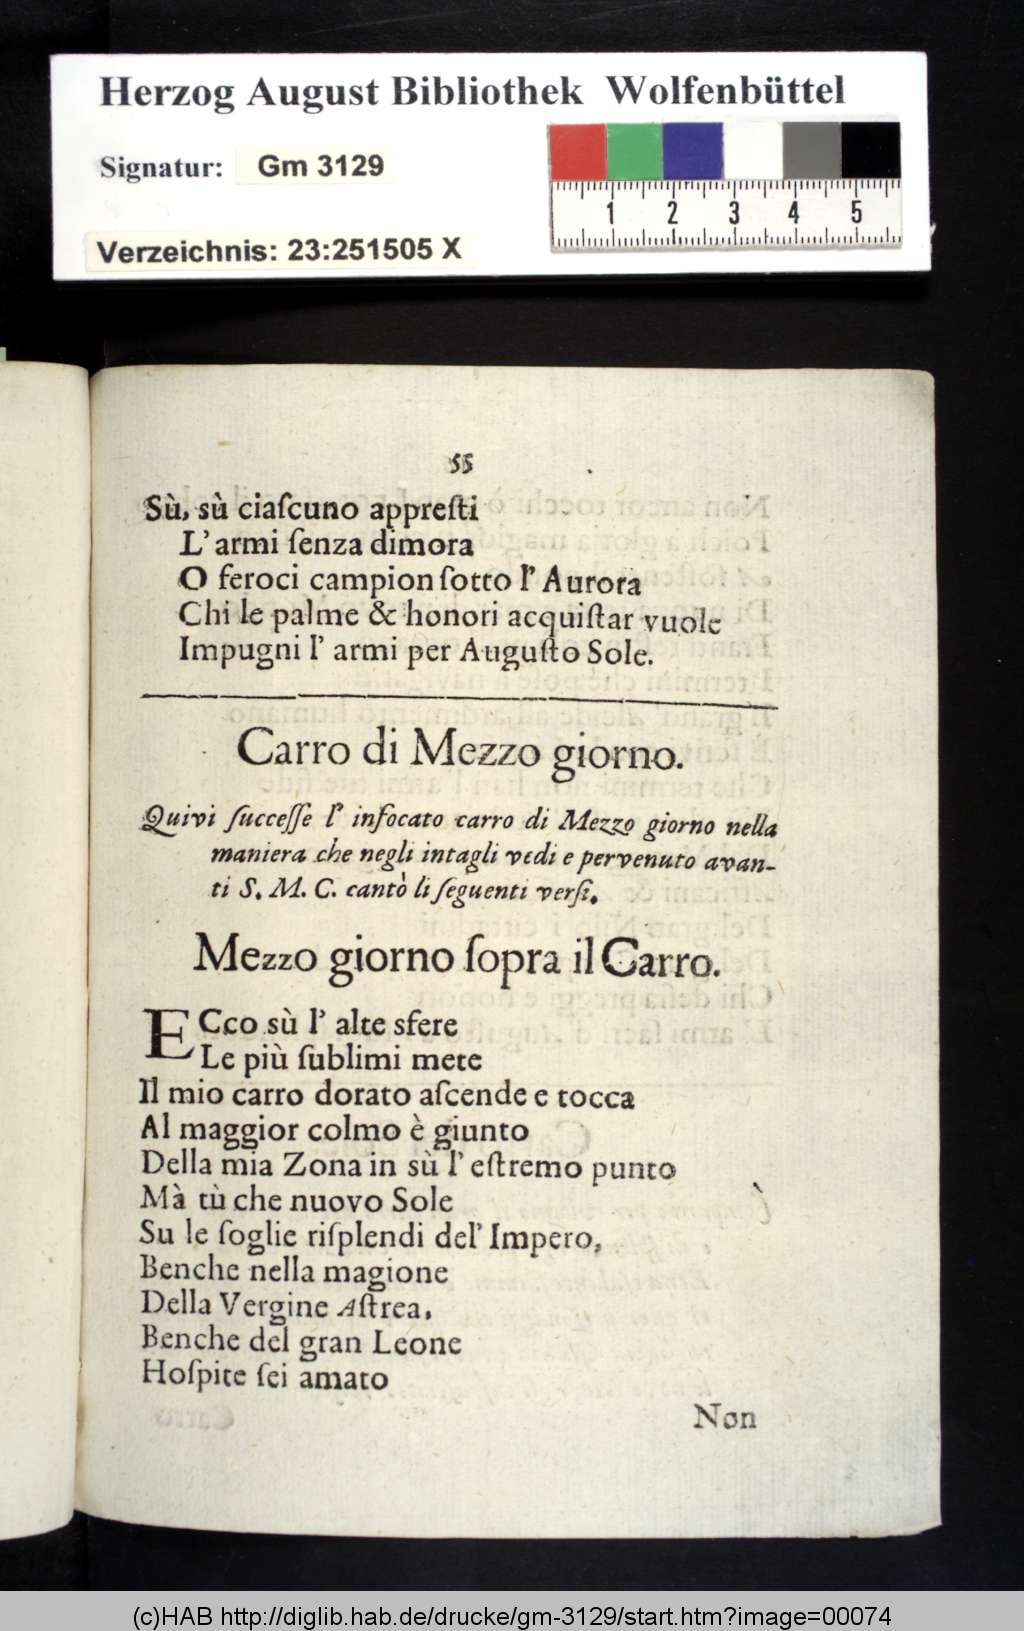 Herzog August Bibliothek Wolfenbüttel
Signatur: Gm 3129
Verzeichnis: 23:251505 X
1 2 3 4 5
55
Sù, sù ciaſcuno appreſti
L' armi ſenza dimora
O feroci campion ſotto l' Aurora
Chi le palme & honori acquiſtar vuole
Impugni l' armi per Auguſto Sole.
Carro di Mezzo giorno.
Quivi ſucceſſe l' infocato carro di Mezzo giorno nella
maniera che negli intagli vedi e pervenuto avan-
ti S. M. C. cantò li ſeguenti verſi.
Mezzo giorno ſopra il Carro.
ECco sù l' alte sfere
Le più ſublimi mete
Il mio carro dorato aſcende e tocca
Al maggior colmo è giunto
Della mia Zona in sù l' eſtremo punto
Mà tù che nuovo Sole
Su le ſoglie riſplendi del' Impero,
Benche nella magione
Della Vergine Aſtrea,
Benche del gran Leone
Hoſpite ſei amato
Non
(c)HAB http://diglib.hab.de/drucke/gm-3129/start.htm?image=00074